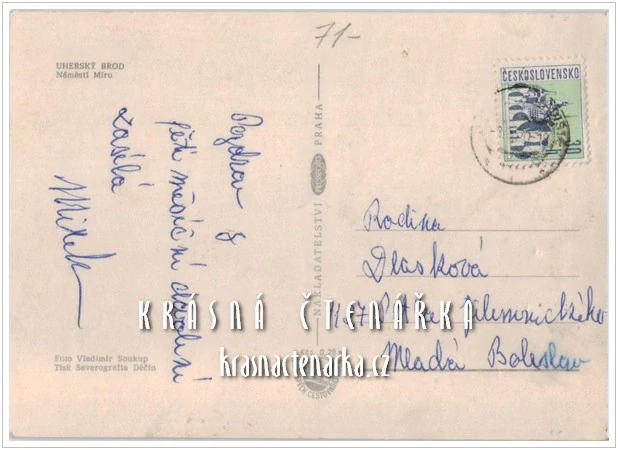 71-
UHERSKÝ BROD
Náměstí Míru
ČESKOSLOVENSKO
30 h
Pozdrav z
pěti měsíční dovolení
zasílá
Mirek
NAKLADATELSTVÍ PRAHA
Rodina
Dlasková
Mladá Boleslav
KRÁSNÁ ČTENÁŘKA
krasnactenarka.cz
Foto Vladimír Soukup
Tisk Severografia Děčín